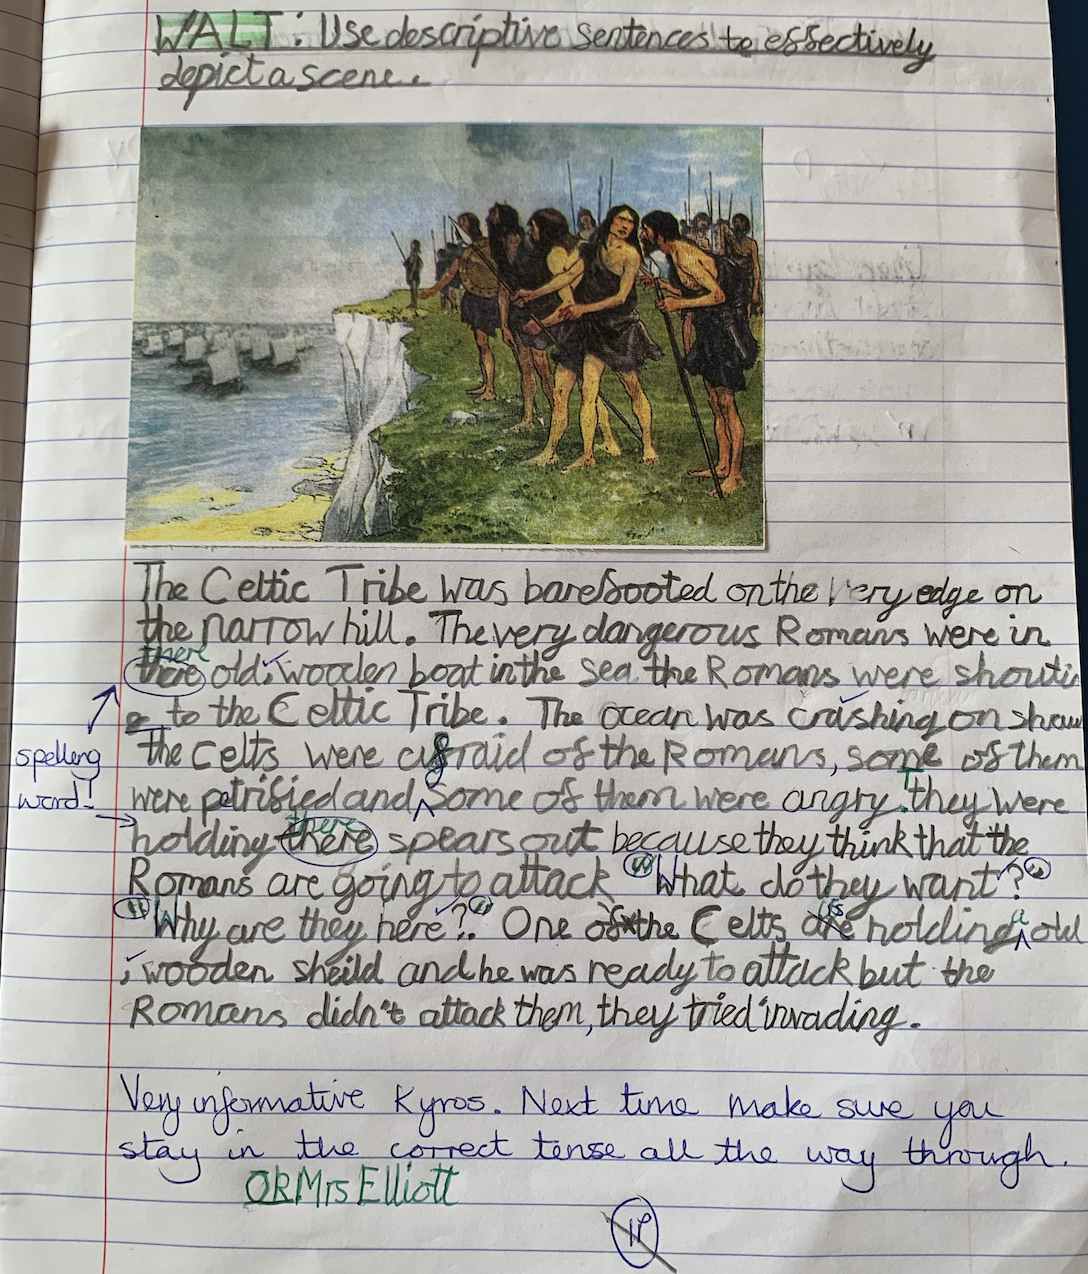 WALT: Use descriptive sentences to effectively
depict a scene.
The Celtic Tribe was barefooted on the very edge on
the narrow hill. The very dangerous Romans were in
there
there old, wooden boat in the sea the Romans were shoutin
g to the Celtic Tribe. The ocean was crashing on shaw
spelleng
the Celts were afraid of the Romans, some of them
word!
were petrified and some of them were angry. they were
there
holding there spears out because they think that the
Romans are going to attack "What do they want?"
"Why are they here?". One of the Celts are is holding a old
, wooden sheild and he was ready to attack but the
Romans didn't attack them, they tried invading.
Very informative Kyros. Next time make sure you
stay in the correct tense all the way through.
OK Mrs Elliott